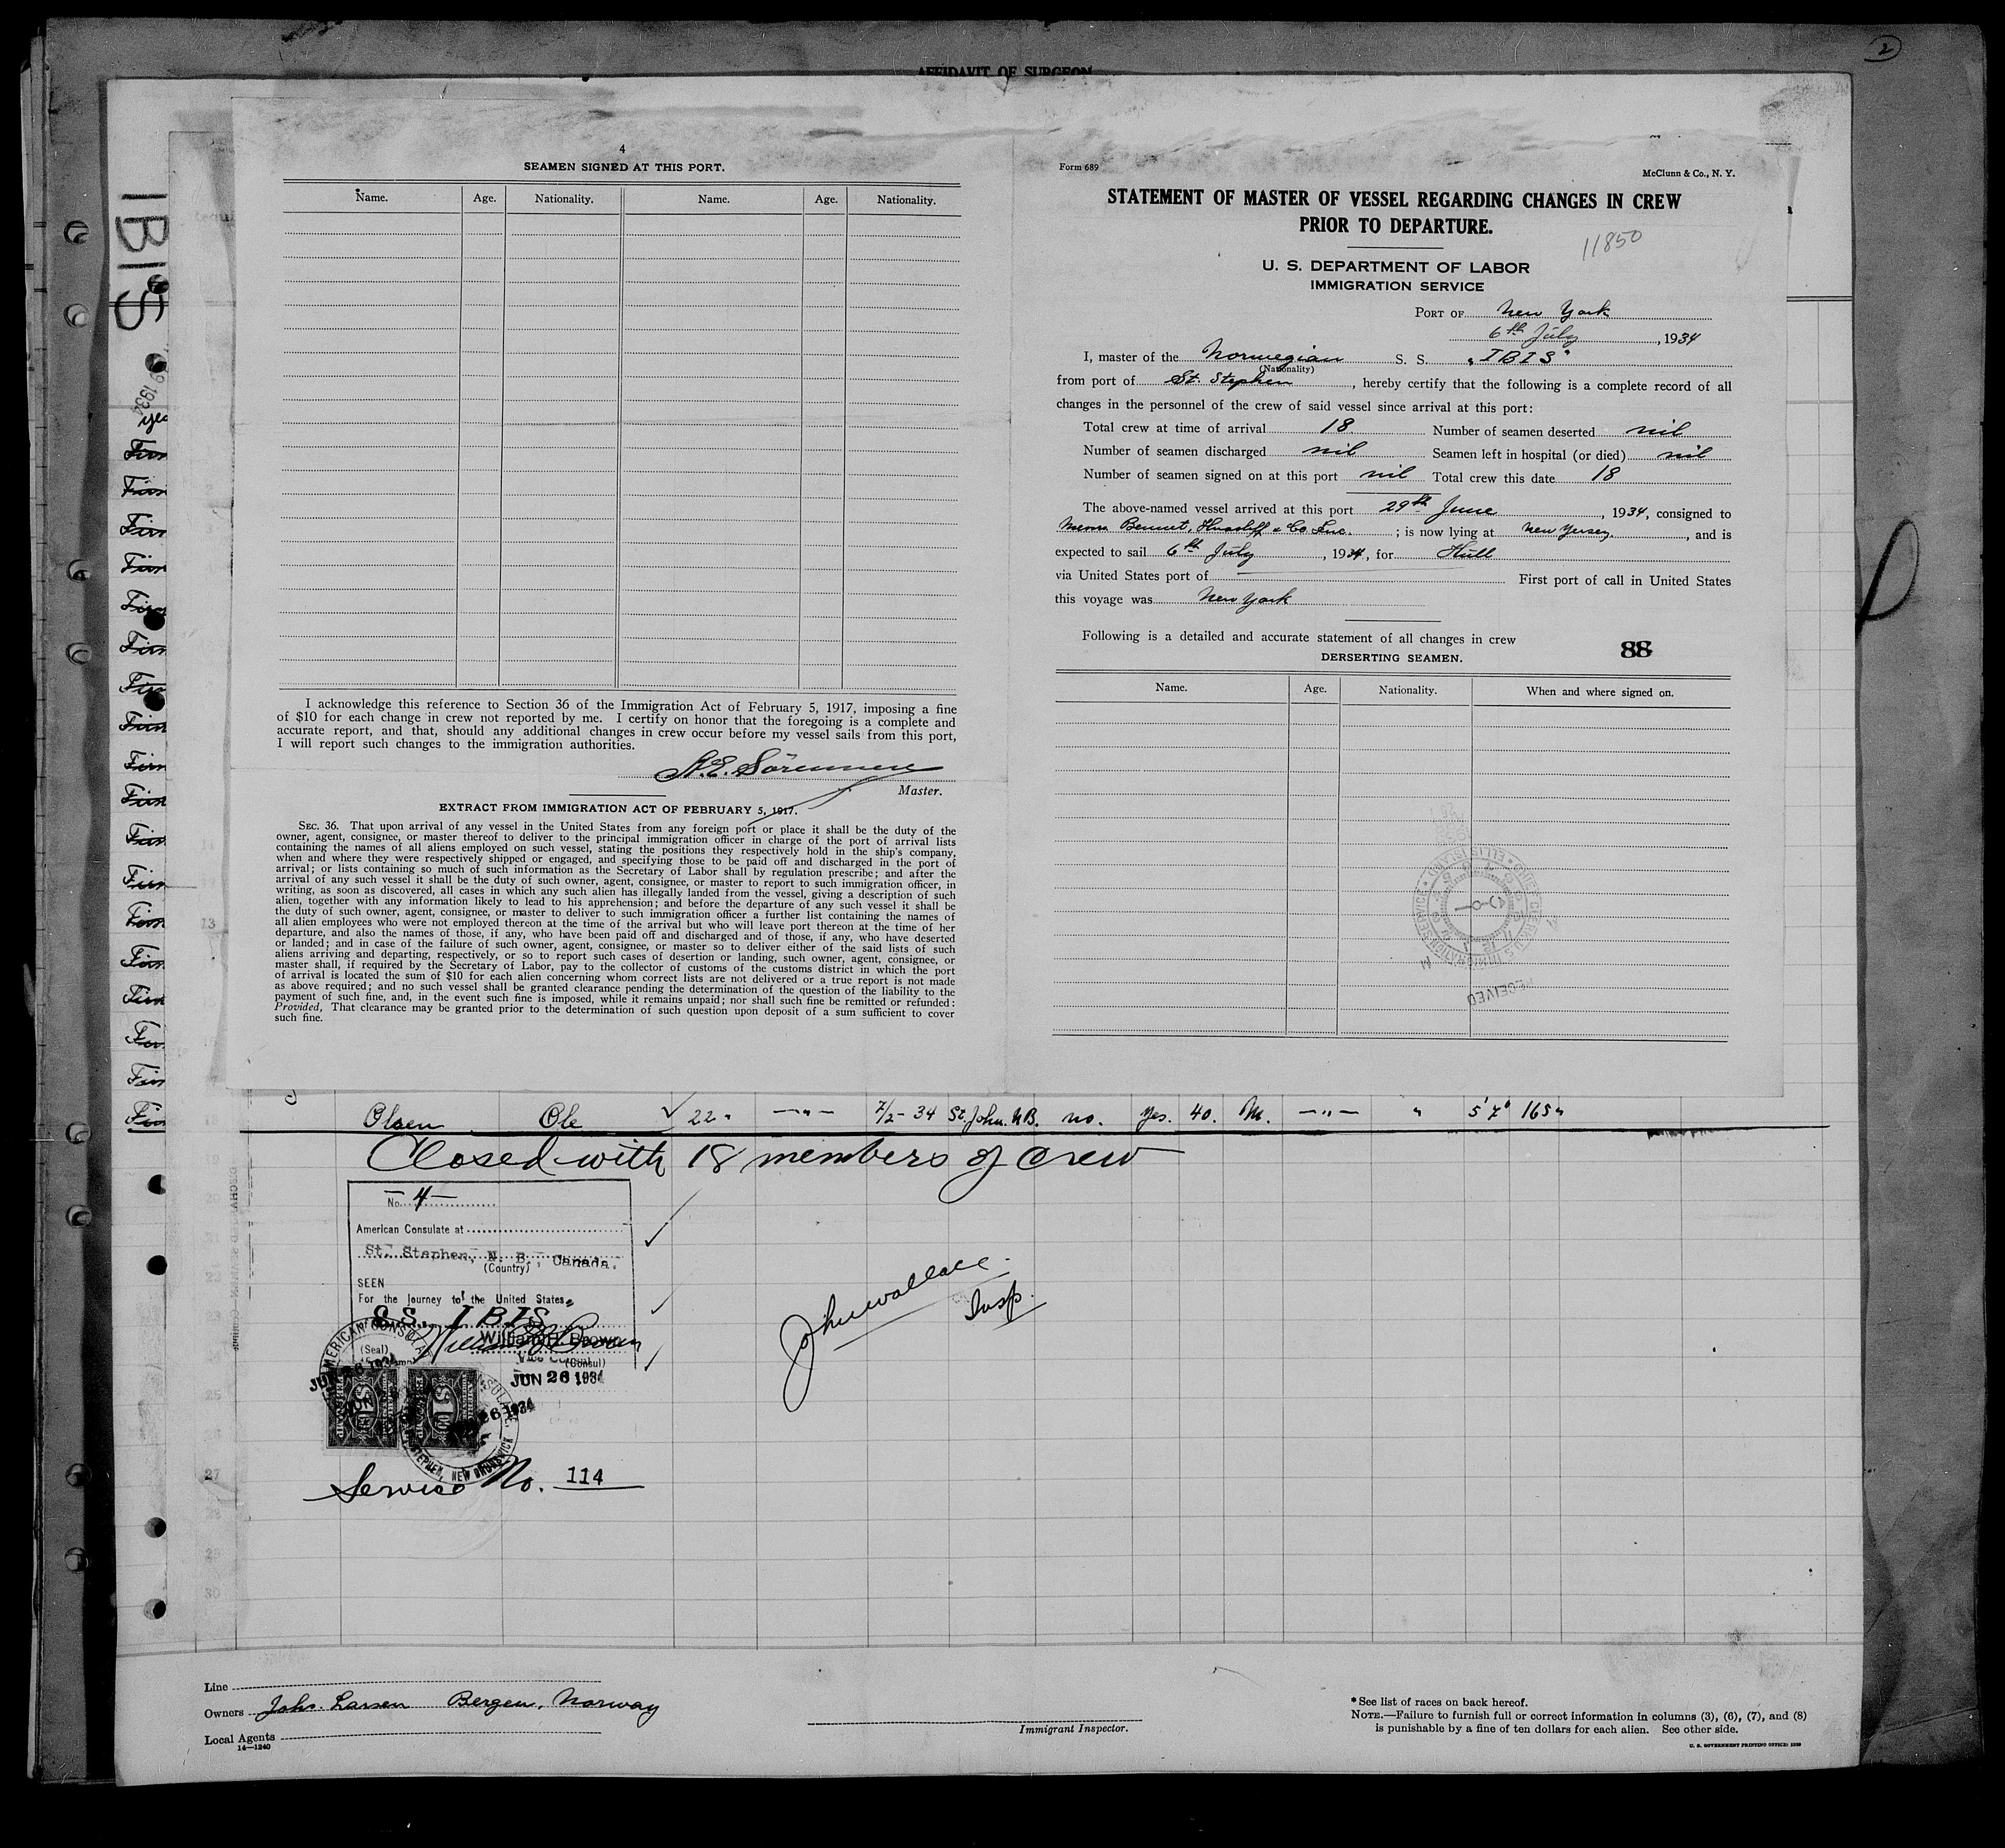 2
AFFIDAVIT OF SURGEON
IBIS
4
SEAMEN SIGNED AT THIS PORT.
Name. Age. Nationality. Name. Age. Nationality.
I acknowledge this reference to Section 36 of the Immigration Act of February 5, 1917, imposing a fine
of $10 for each change in crew not reported by me. I certify on honor that the foregoing is a complete and
accurate report, and that, should any additional changes in crew occur before my vessel sails from this port,
I will report such changes to the immigration authorities.
Master.
EXTRACT FROM IMMIGRATION ACT OF FEBRUARY 5, 1917.
SEC. 36. That upon arrival of any vessel in the United States from any foreign port or place it shall be the duty of the
owner, agent, consignee, or master thereof to deliver to the principal immigration officer in charge of the port of arrival lists
containing the names of all aliens employed on such vessel, stating the positions they respectively hold in the ship's company,
when and where they were respectively shipped or engaged, and specifying those to be paid off and discharged in the port of
arrival; or lists containing so much of such information as the Secretary of Labor shall by regulation prescribe; and after the
arrival of any such vessel it shall be the duty of such owner, agent, consignee, or master to report to such immigration officer, in
writing, as soon as discovered, all cases in which any such alien has illegally landed from the vessel, giving a description of such
alien, together with any information likely to lead to his apprehension; and before the departure of any such vessel it shall be
the duty of such owner, agent, consignee, or master to deliver to such immigration officer a further list containing the names of
all alien employees who were not employed thereon at the time of the arrival but who will leave port thereon at the time of her
departure, and also the names of those, if any, who have been paid off and discharged and of those, if any, who have deserted
or landed; and in case of the failure of such owner, agent, consignee, or master so to deliver either of the said lists of such
aliens arriving and departing, respectively, or so to report such cases of desertion or landing, such owner, agent, consignee, or
master shall, if required by the Secretary of Labor, pay to the collector of customs of the customs district in which the port
of arrival is located the sum of $10 for each alien concerning whom correct lists are not delivered or a true report is not made
as above required; and no such vessel shall be granted clearance pending the determination of the question of the liability to the
payment of such fine, and, in the event such fine is imposed, while it remains unpaid; nor shall such fine be remitted or refunded:
Provided, That clearance may be granted prior to the determination of such question upon deposit of a sum sufficient to cover
such fine.
Form 689 McClunn & Co., N. Y.
STATEMENT OF MASTER OF VESSEL REGARDING CHANGES IN CREW
PRIOR TO DEPARTURE.
11850
U. S. DEPARTMENT OF LABOR
IMMIGRATION SERVICE
PORT OF New York
6th July, 1934
I, master of the Norwegian S. S. "IBIS"
(Nationality)
from port of St. Stephen, hereby certify that the following is a complete record of all
changes in the personnel of the crew of said vessel since arrival at this port:
Total crew at time of arrival 18 Number of seamen deserted nil
Number of seamen discharged nil Seamen left in hospital (or died) nil
Number of seamen signed on at this port nil Total crew this date 18
The above-named vessel arrived at this port 29th June, 1934, consigned to
Messrs Bennet, & Co Inc.; is now lying at New Yersey, and is
expected to sail 6th July, 1934, for Hull
via United States port of — First port of call in United States
this voyage was New York
Following is a detailed and accurate statement of all changes in crew
88
DERSERTING SEAMEN.
Name. Age. Nationality. When and where signed on.
RECEIVED
Olsen Ole 22 " —"— 7/2-34 St. John. N.B. no. Yes. 40. M. —"— " 5'7" 165"
Closed with 18 members of crew
No. 4
American Consulate at
St. Stephen, N. B., Canada.
(Country)
SEEN
For the Journey to the United States
S.S. IBIS
William H. Brown
(Seal)
(Consul)
JUN 26 1934
Service No. 114
John Wallace
Insp.
13
27
29
30
Line
Owners Johs. Larsen Bergen, Norway
Local Agents
14—1240
Immigrant Inspector.
* See list of races on back hereof.
NOTE.—Failure to furnish full or correct information in columns (3), (6), (7), and (8)
is punishable by a fine of ten dollars for each alien. See other side.
U. S. GOVERNMENT PRINTING OFFICE: 1929